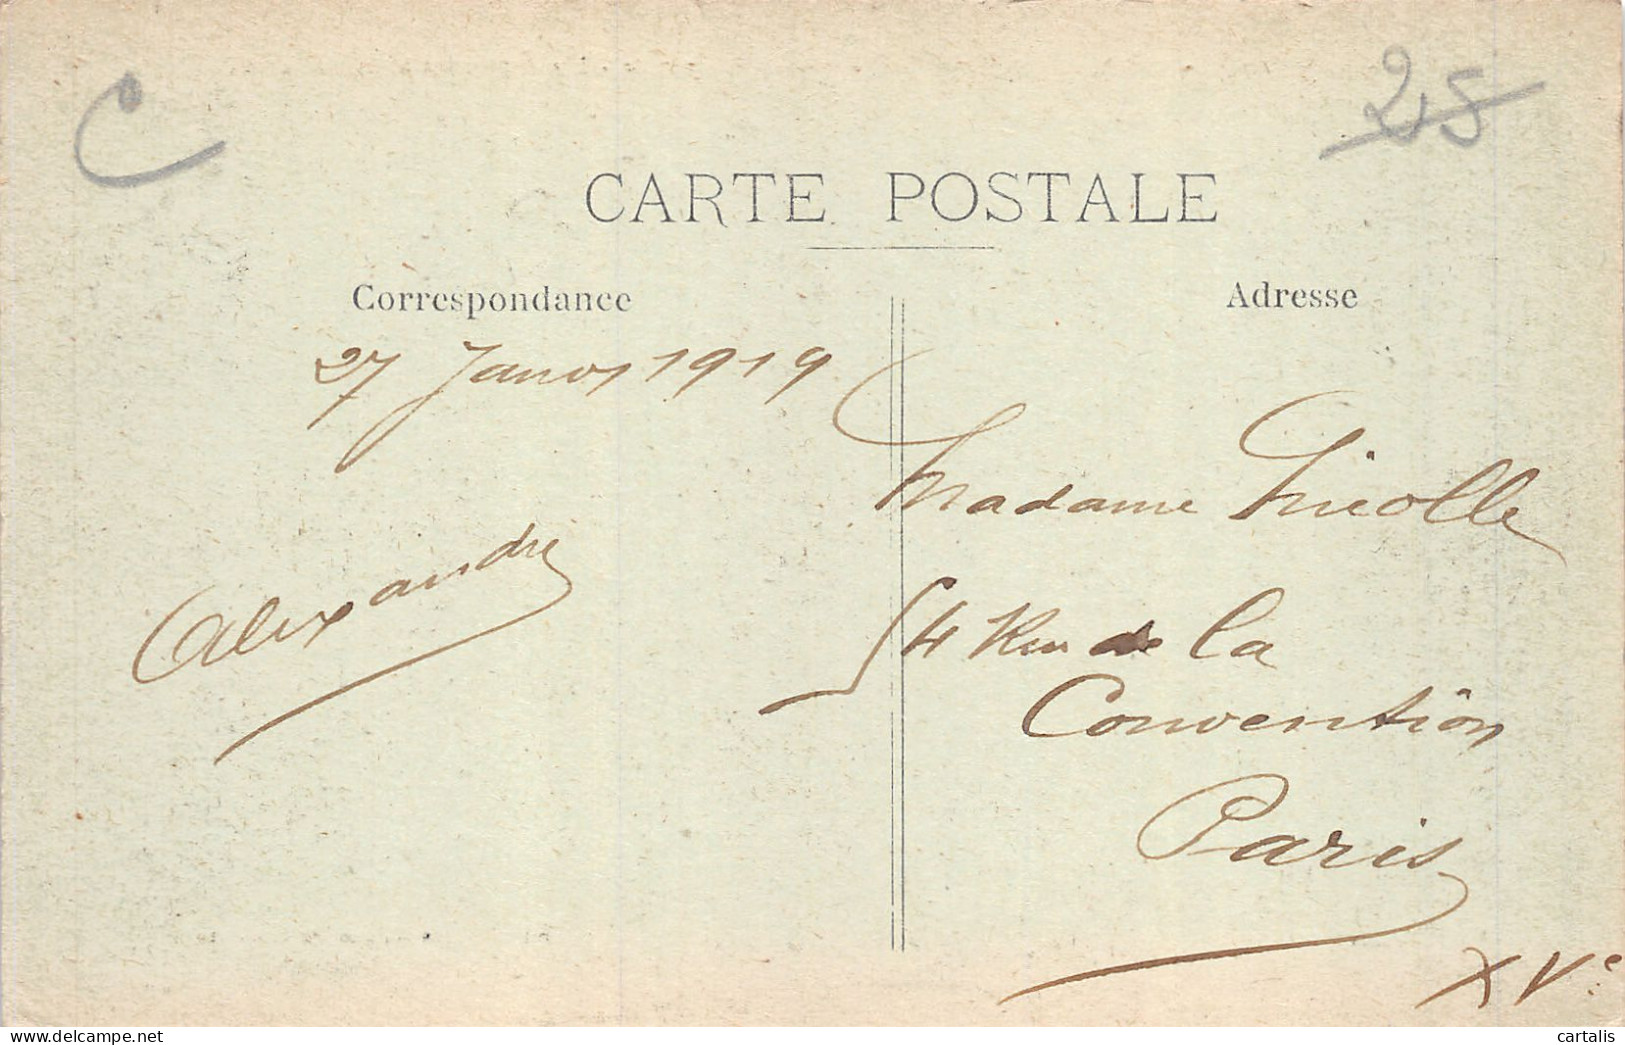 C
25
CARTE POSTALE
Correspondance
Adresse
27 Janvr 1919
Alexandre
Madame Nicolle
54 Rue de La
Convention
Paris
XVe
delcampe.net
cartalis